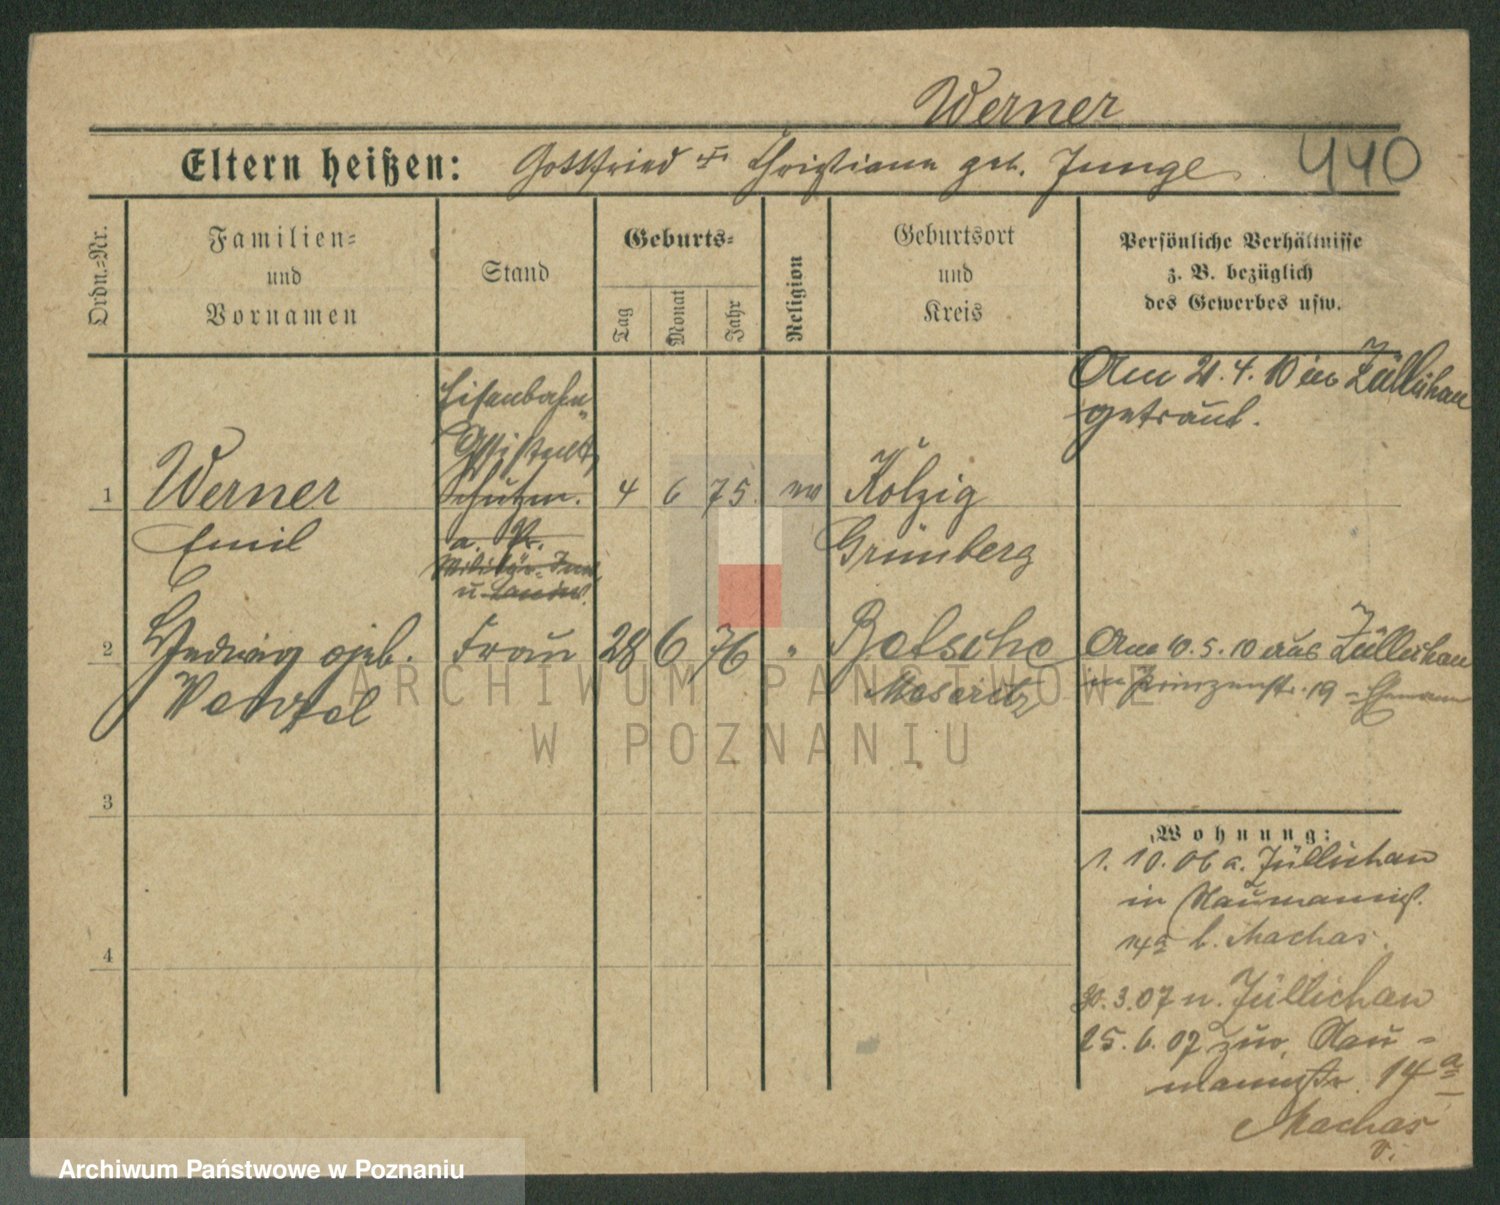 Werner
Eltern heißen: Gottfried u. Christiane geb. Junge
440
Ordn.-Nr.
Familien-
und
Vornamen
Stand
Geburts-
Tag
Monat
Jahr
Religion
Geburtsort
und
Kreis
Persönliche Verhältnisse
z. B. bezüglich
des Gewerbes usw.
Am 21. 4. 10 in Züllichau
getraut.
1
Werner
Emil
Eisenbahn-
Assistent,
Schutzm.
a. Pr.
Militär-
u.
4
6
75
ev
Kolzig
Grünberg
2
Hedwig geb.
Wenzel
Frau
28
6
76
"
Betsche
Meseritz
Am 10. 5. 10 aus Züllichau
in Prinzenstr. 19 - Ehemann
3
4
Wohnung:
1. 10. 06 a. Züllichau
in Naumannst.
14a b. Machas.
30. 3. 07 n. Züllichau
25. 6. 07 zur. Nau-
mannstr. 14a
Machas
ARCHIWUM PAŃSTWOWE
W POZNANIU
Archiwum Państwowe w Poznaniu